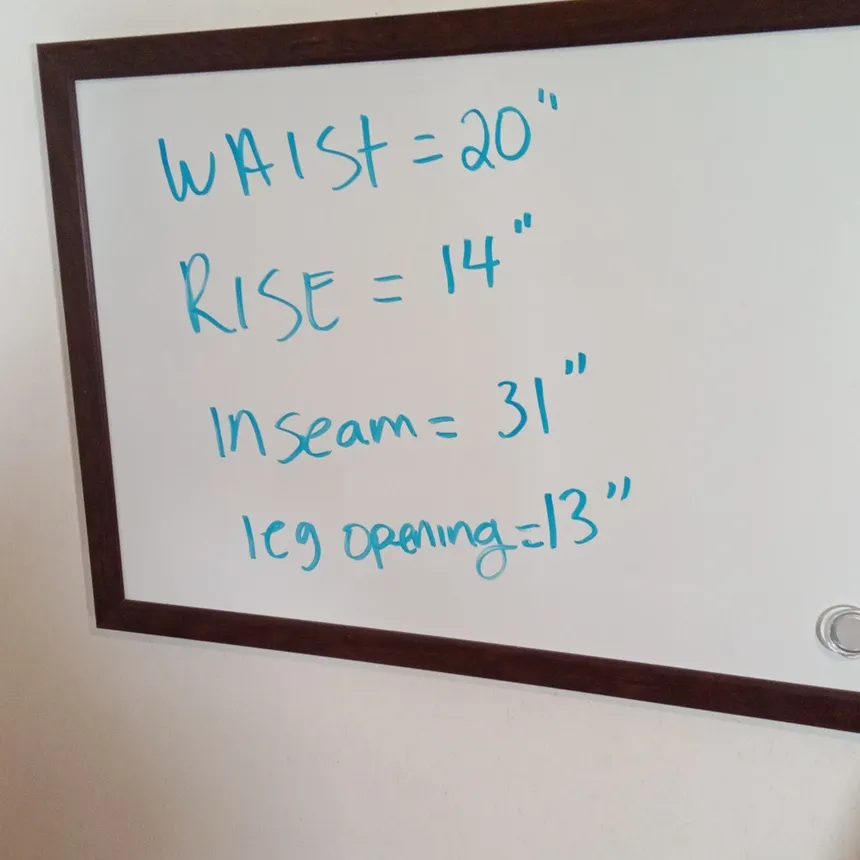 WAISt = 20"
RISE = 14"
Inseam = 31"
leg opening = 13"